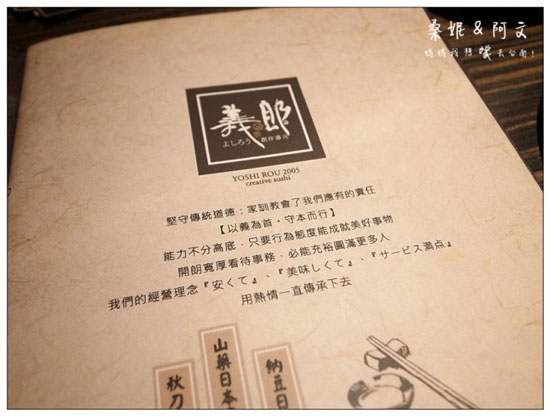 桑妮&阿文
媽媽我想嫁去台南!
義郎
よしろう 創作壽司
YOSHI ROU 2005
creative sushi
堅守傳統道德：家訓教會了我們應有的責任
【以義為首。守本而行】
能力不分高底，只要行為態度能成就美好事物
開朗寬厚看待事務，必能充裕圓滿更多人
我們的經營理念『安くて』、『美味しくて』、『サービス満点』
用熱情一直傳承下去
秋刀
山藥日本
納豆日